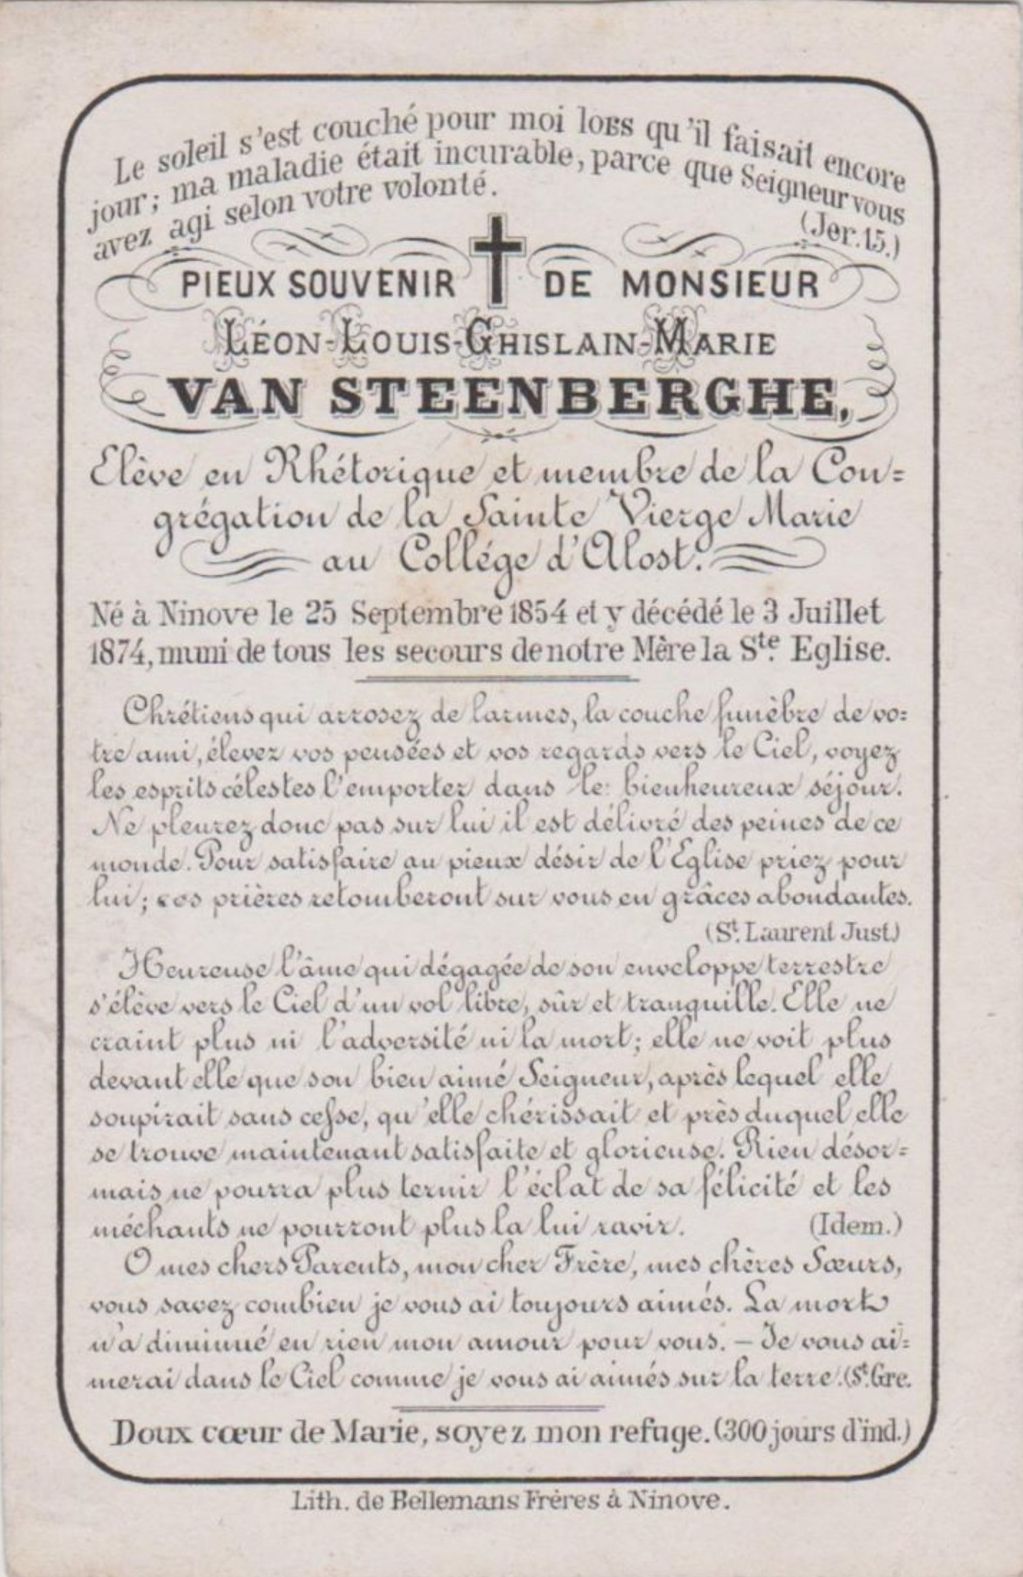 Le soleil s'est couché pour moi lors qu'il faisait encore
jour; ma maladie était incurable, parce que Seigneur vous
avez agi selon votre volonté.
(Jer.15.)
PIEUX SOUVENIR DE MONSIEUR
LÉON-LOUIS-GHISLAIN-MARIE
VAN STEENBERGHE,
Elève en Rhétorique et membre de la Con=
grégation de la Sainte Vierge Marie
au Collége d'Alost.
Né à Ninove le 25 Septembre 1854 et y décédé le 3 Juillet
1874, muni de tous les secours de notre Mère la Ste. Eglise.
Chrétiens qui arrosez de larmes, la couche funèbre de vo=
tre ami, élevez vos pensées et vos regards vers le Ciel, voyez
les esprits célestes l'emporter dans le bienheureux séjour.
Ne pleurez donc pas sur lui il est délivré des peines de ce
monde. Pour satisfaire au pieux désir de l'Eglise priez pour
lui; ces prières retomberont sur vous en grâces abondantes.
(St. Laurent Just.)
Heureuse l'âme qui dégagée de son enveloppe terrestre
s'élève vers le Ciel d'un vol libre, sûr et tranquille. Elle ne
craint plus ni l'adversité ni la mort; elle ne voit plus
devant elle que son bien aimé Seigneur, après lequel elle
soupirait sans cesse, qu'elle chérissait et près duquel elle
se trouve maintenant satisfaite et glorieuse. Rien désor=
mais ne pourra plus ternir l'éclat de sa félicité et les
méchants ne pourront plus la lui ravir. (Idem.)
O mes chers Parents, mon cher Frère, mes chères Sœurs,
vous savez combien je vous ai toujours aimés. La mort
n'a diminué en rien mon amour pour vous. — Je vous ai=
merai dans le Ciel comme je vous ai aimés sur la terre. (St. Gre.
Doux cœur de Marie, soyez mon refuge. (300 jours d'ind.)
Lith. de Bellemans Frères à Ninove.